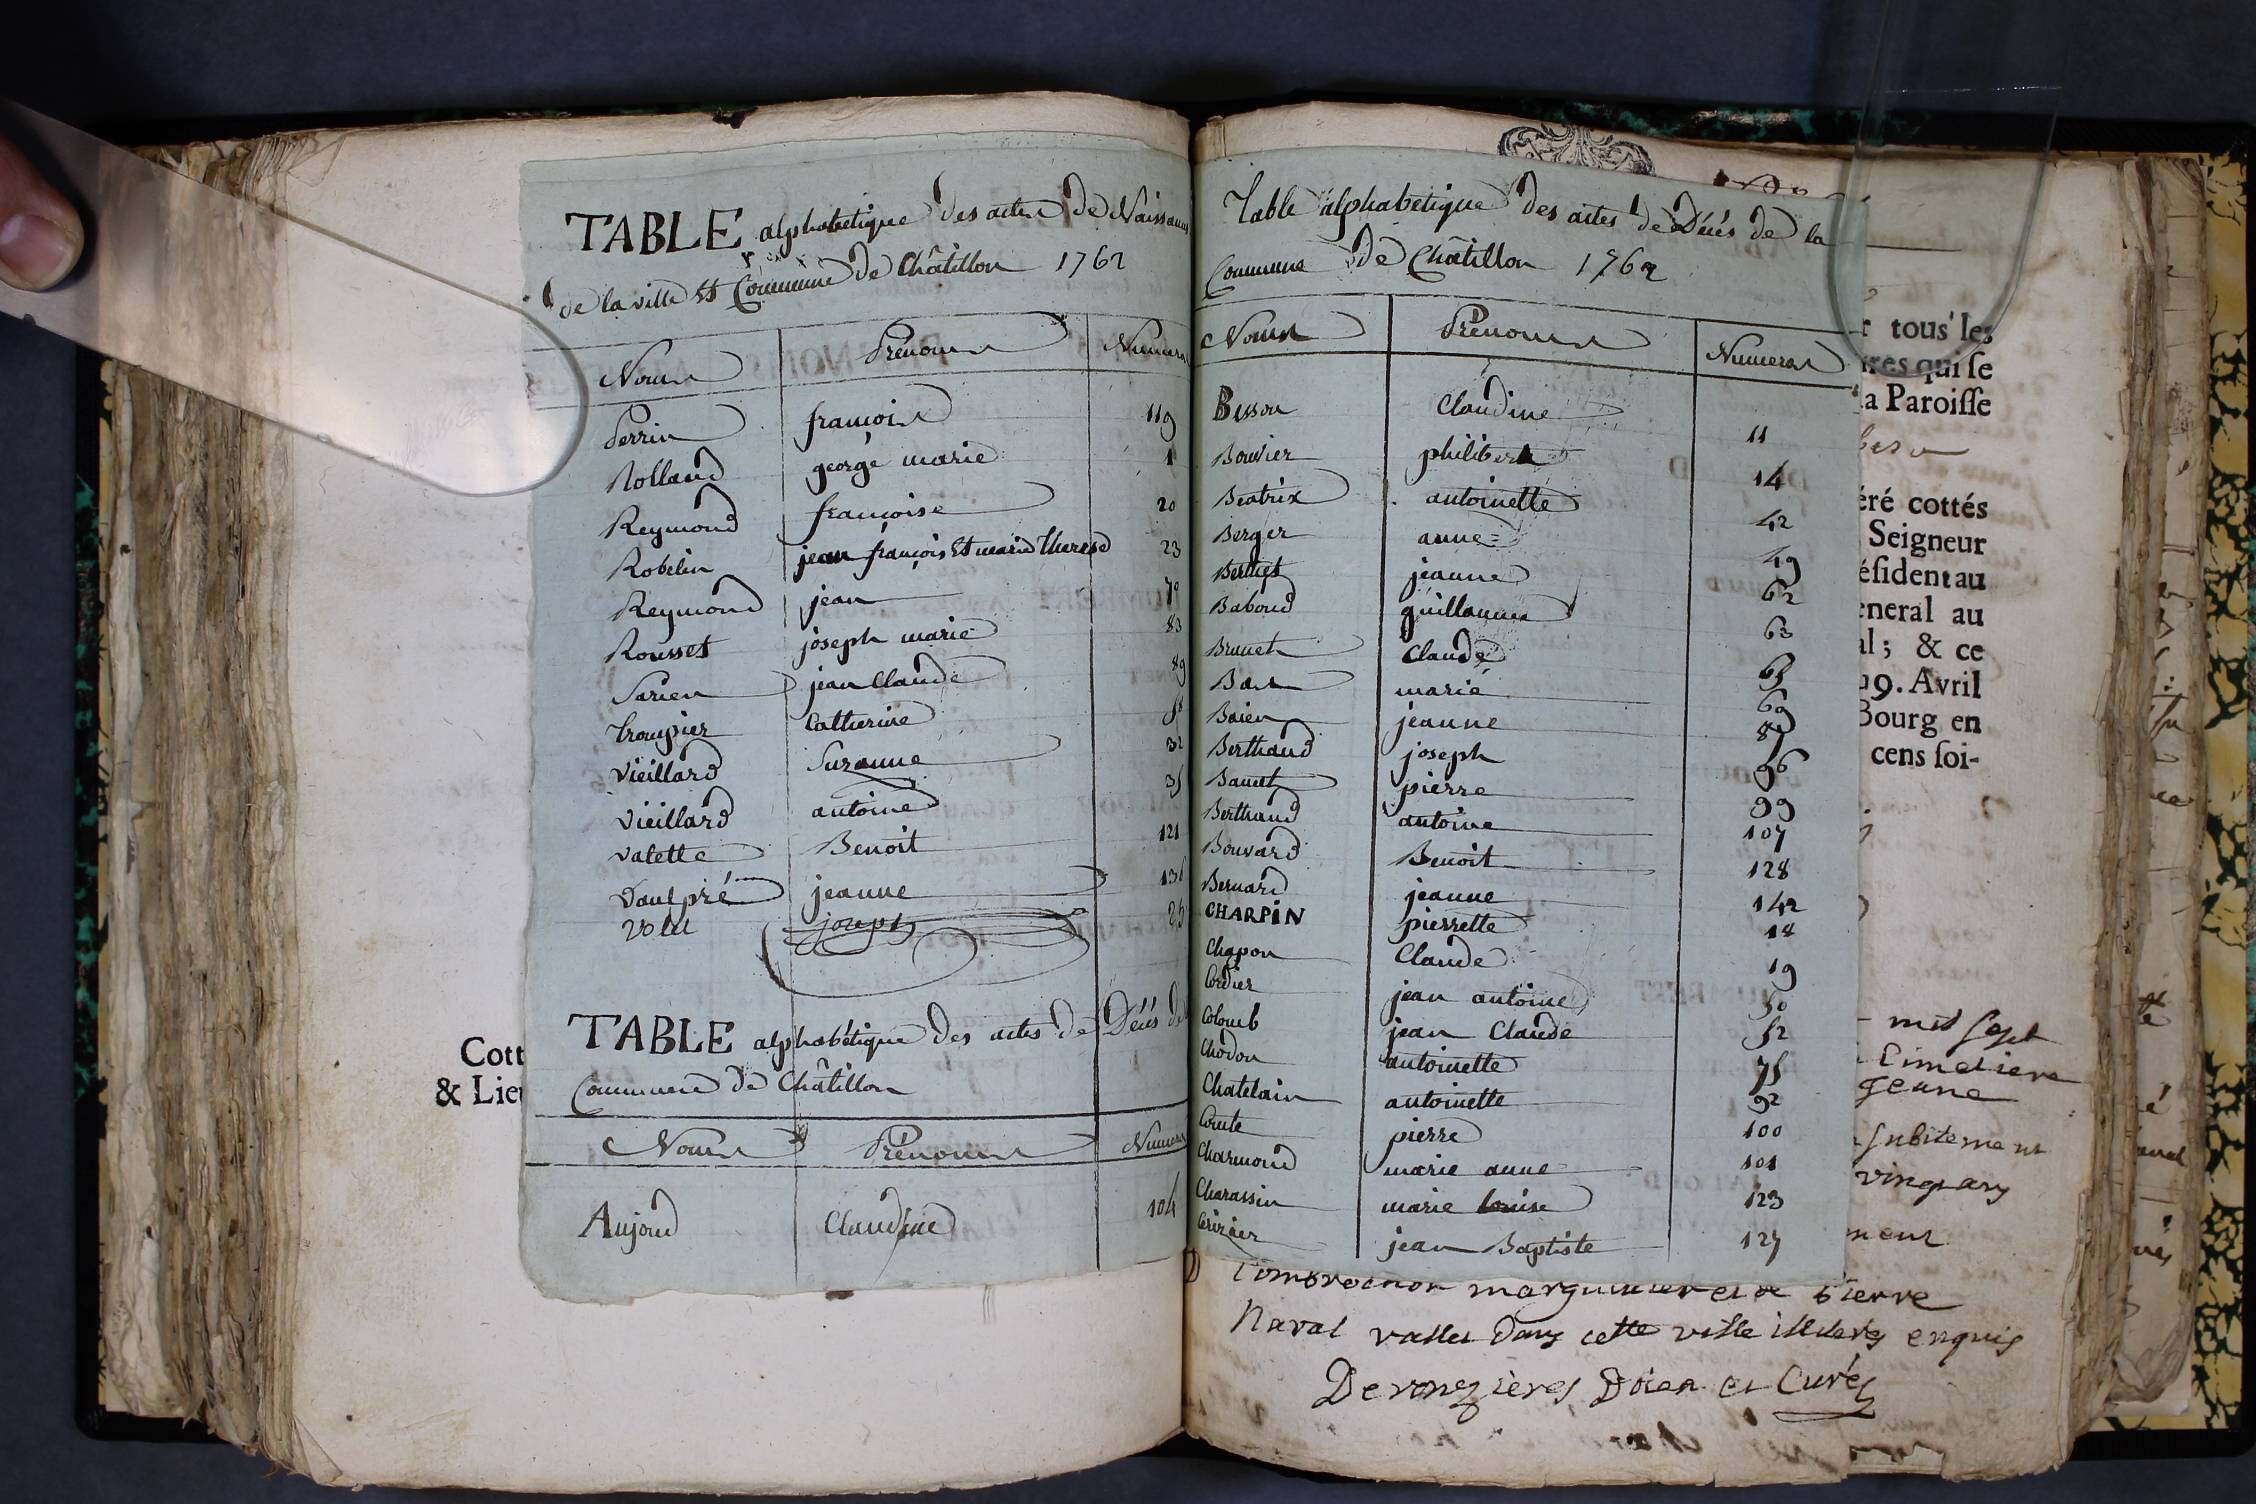 TABLE alphabetique des actes de Naissances
de la ville et Commune de Châtillon 1762
Noms Prénoms Numeros
Perrin françois 119
Rolland george marie 1
Reymond françoise 20
Robelin jean françois et marie therese 23
Reymond jean 70
Rousset joseph marie 83
Sarien jean Claude 89
trompier Catherine 58
Vieillard Suzanne 32
Vieillard antoine 35
Valette Benoit 121
Vaulpré jeanne 136
Volet joseph 26
TABLE alphabétique des actes de Décés de
Commune de Châtillon
Noms Prénoms Numeros
Aujoud Claudine 104
Cott
& Lieu
Table alphabetique des actes de Décés de la
Commune de Châtillon 1762
Noms Prénoms Numeros
Besson Claudine 11
Bouvier philibert 14
Beatrix antoinette 42
Berger anne 49
Berthet jeanne 62
Baboud guillaume 63
Brunet Claude 65
Bas marie 69
Baien jeanne
Berthaud joseph 96
Banet pierre 99
Berthaud antoine 107
Bouvard Benoit 128
Bernard jeanne 142
CHARPIN pierrette 18
Chapon Claude 19
Cordier jean antoine 50
Colomb jean Claude 52
Chodon antoinette 75
Chatelain antoinette 92
Comte pierre 100
Charmond marie anne 101
Charassin marie louise 123
Cerizier jean Baptiste 127
r tous les
ires qui se
la Paroisse
éré cottés
Seigneur
ésident au
eneral au
al ; & ce
19. Avril
Bourg en
cens soi-
mil sept
Cimetiere
jeane
subitement
vingt ans
ment
marguillier et de Pierre
Naval vallet dans cette ville illiterés enquis
Devonezières Doien et Curé